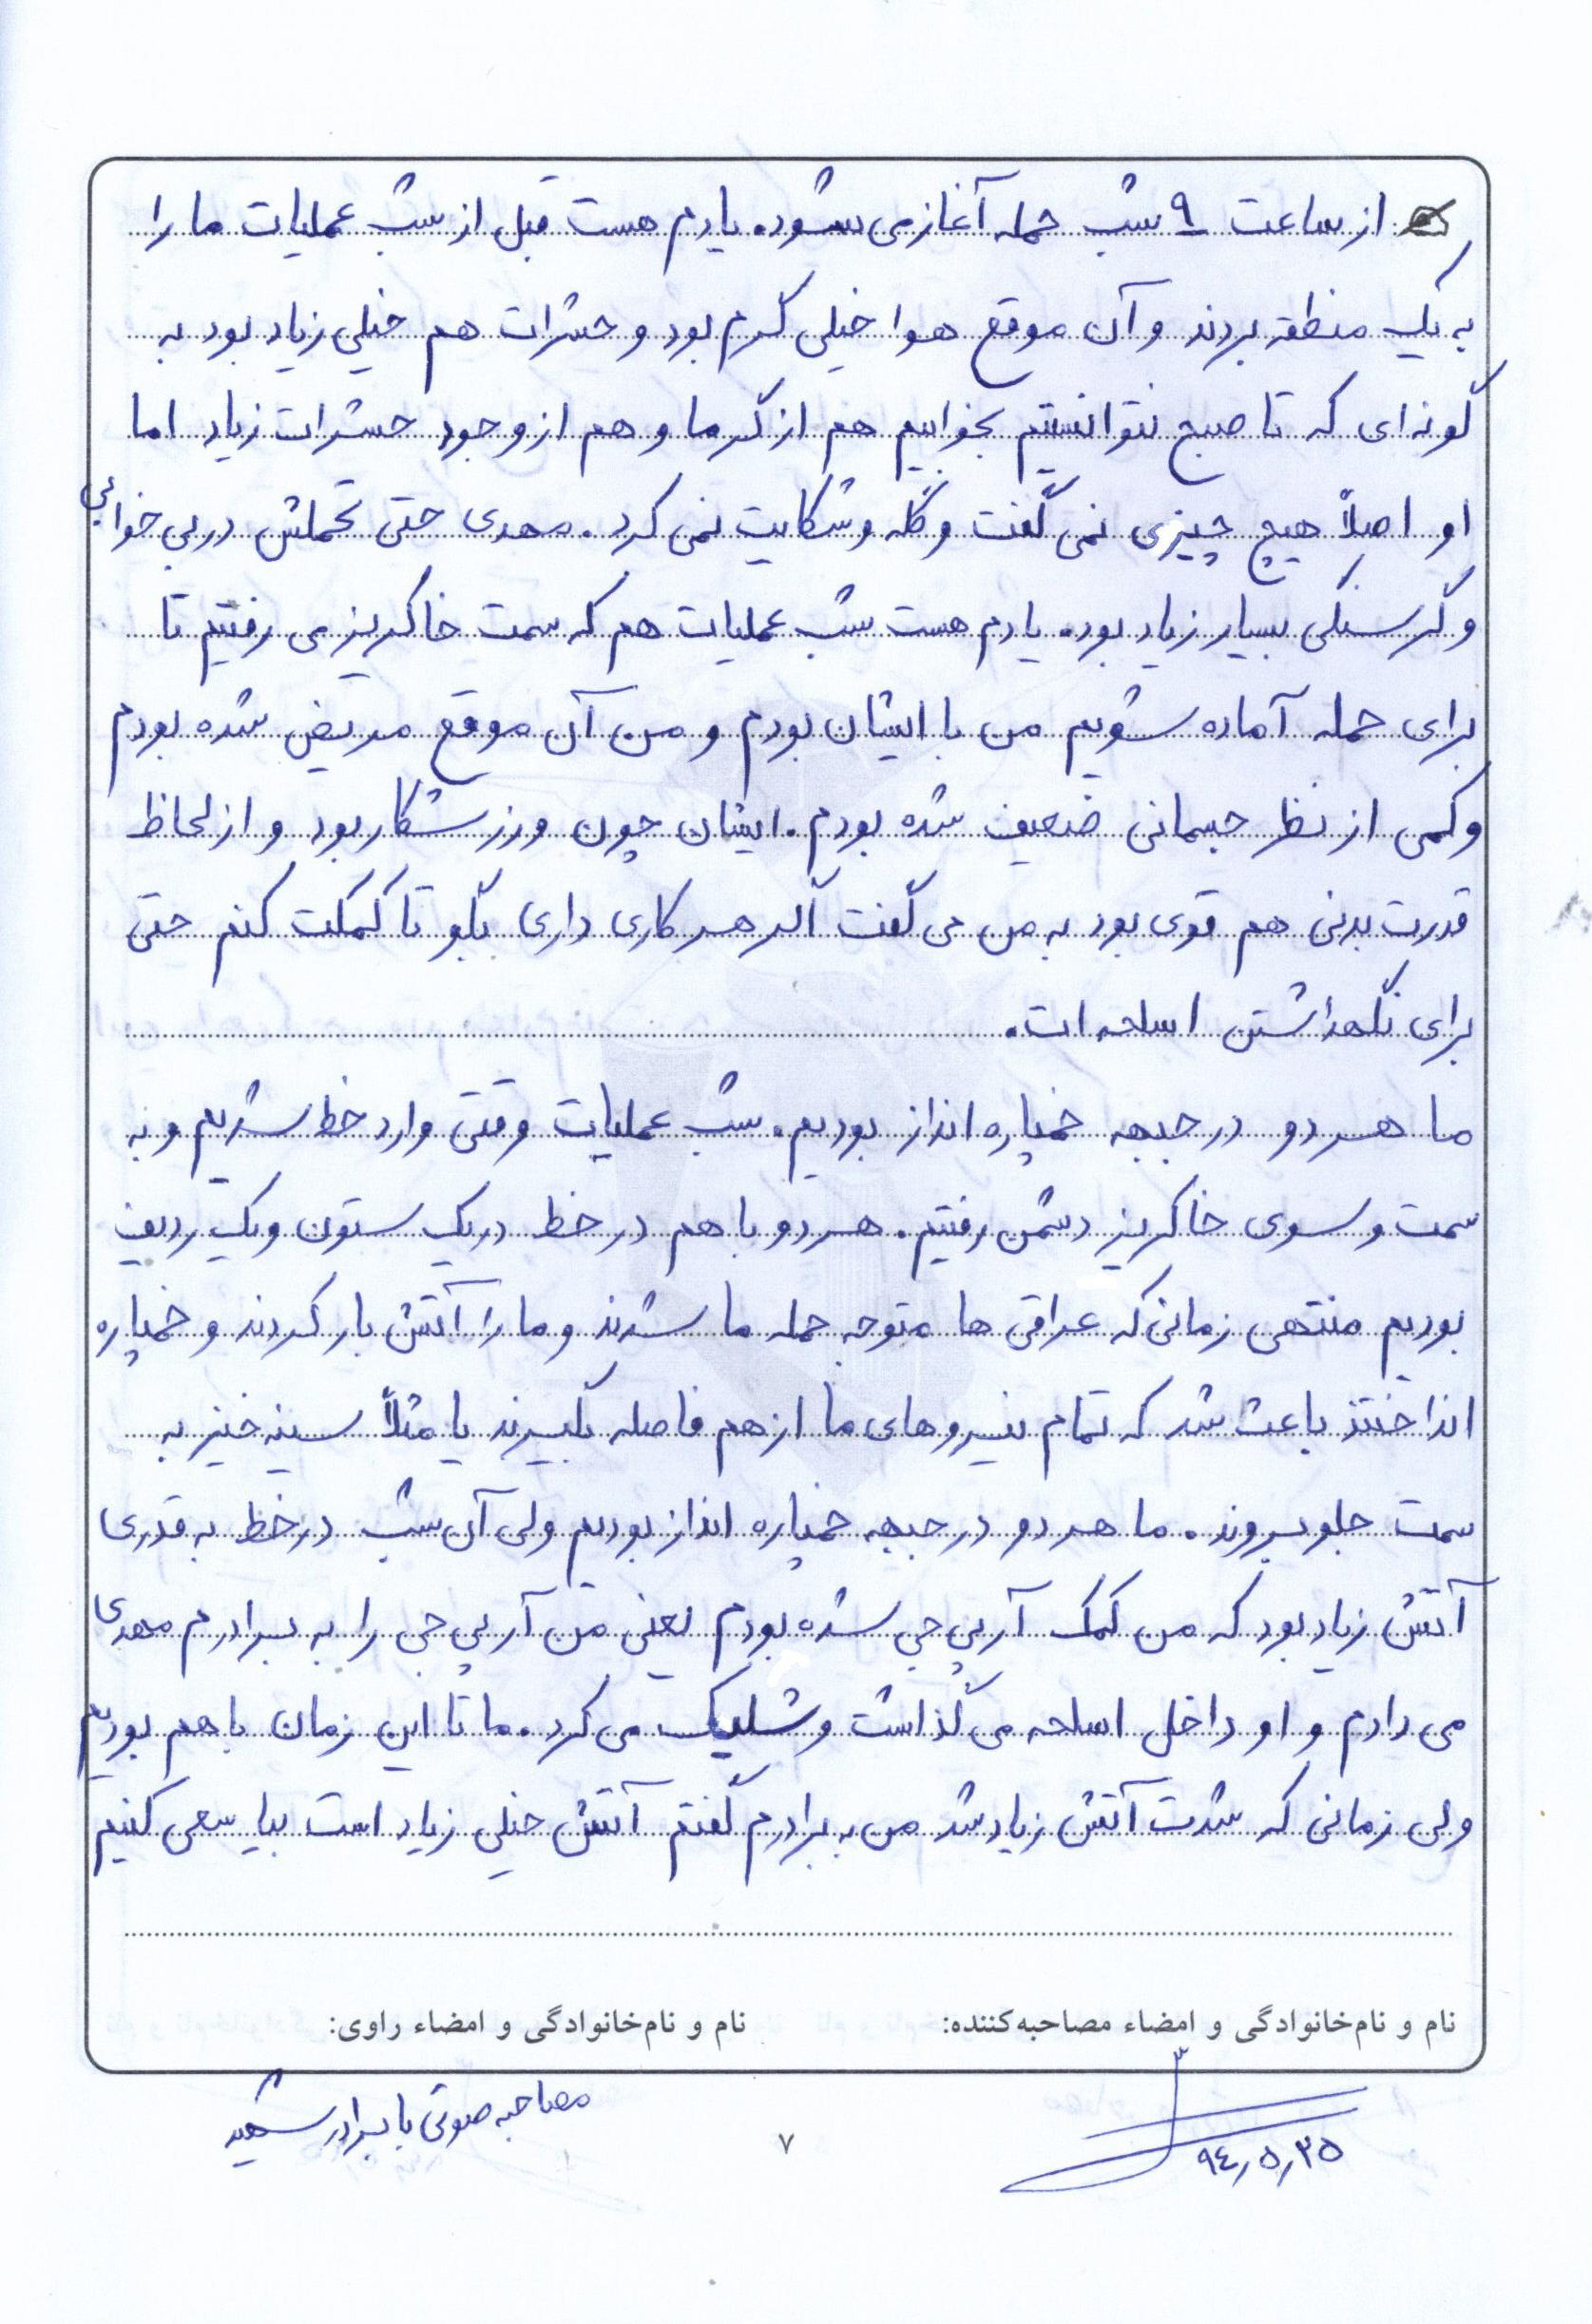 از ساعت ۹ شب حمله آغاز می شود. یادم هست قبل از شب عملیات ما را
به یک منطقه بردند و آن موقع هوا خیلی گرم بود و حشرات هم خیلی زیاد بود به
گونه ای که تا صبح نتوانستیم بخوابیم هم از گرما و هم از وجود حشرات زیاد اما
او اصلاً هیچ چیزی نمی گفت و گله و شکایت نمی کرد. مهدی حتی تحملش در بی خوابی
و گرسنگی بسیار زیاد بود. یادم هست شب عملیات هم که سمت خاکریز می رفتیم تا
برای حمله آماده شویم من با ایشان بودم و من آن موقع مریض شده بودم
و کمی از نظر جسمانی ضعیف شده بودم. ایشان چون ورزشکار بود و از لحاظ
قدرت بدنی هم قوی بود به من می گفت اگر هر کاری داری بگو تا کمکت کنم حتی
برای نگهداشتن اسلحه ات.
ما هر دو در جبهه خمپاره انداز بودیم. شب عملیات وقتی وارد خط شدیم و به
سمت و سوی خاکریز دشمن رفتیم. هر دو با هم در خط در یک ستون و یک ردیف
بودیم منتهی زمانی که عراقی ها متوجه حمله ما شدند و ما را آتش بار کردند و خمپاره
انداختند باعث شد که تمام نیروهای ما از هم فاصله بگیرند یا مثلاً سینه خیز به
سمت جلو بروند. ما هر دو در جبهه خمپاره انداز بودیم ولی آن شب در خط به قدری
آتش زیاد بود که من کمک آرپی جی شده بودم یعنی من آرپی جی را به برادرم مهدی
می دادم و او داخل اسلحه می گذاشت و شلیک می کرد. ما تا این زمان با هم بودیم
ولی زمانی که شدت آتش زیاد شد من به برادرم گفتم آتش خیلی زیاد است بیا سعی کنیم
نام و نام‌خانوادگی و امضاء مصاحبه‌کننده: نام و نام‌خانوادگی و امضاء راوی:
مصاحبه صوتی با برادر شهید
۹٤٫۵٫۲۵
۷